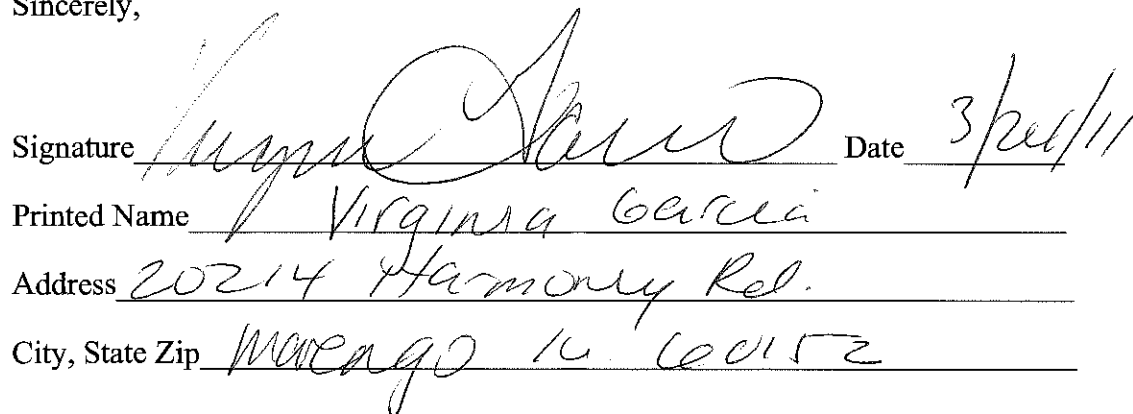 Sincerely,
Signature Virginia Garcia Date 3/24/11
Printed Name Virginia Garcia
Address 20214 Harmony Rd.
City, State Zip Marengo IL 60152